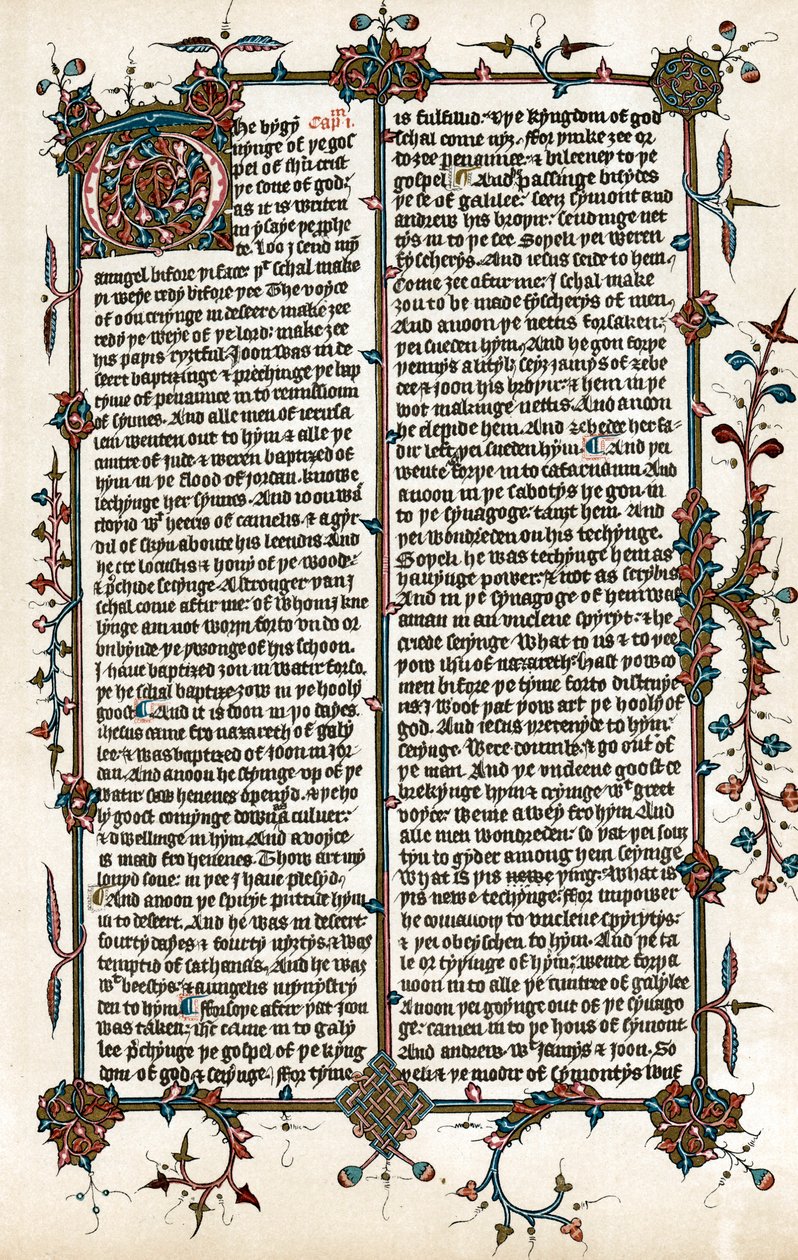 The bygyn
Cap^m. i.
nynge of ye gos
pel of ihu crist
ye sone of god:
as it is writen
in ysaye ye pphe
te. Loo j send myn
aungel bifore yi face: y^t schal make
yi weye redy bifore yee The voyce
of oon cryinge in desert: make zee
redy ye weye of ye lord: make zee
his papis ryztful. Joon was in de
seert baptizinge & prechinge ye bap
tyme of penaunce in to remissioun
of synnes. And alle men of ierusa
lem wenten out to hym & alle ye
cuntre of iude & weren baptized of
hym in ye flood of Jordan. knowe
lechynge her synnes. And ioon was
cloyid w^t heeris of camelis: & a gyr
dil of skyn aboute his leendis. And
he eet locustis & hony of ye wode:
& pchide seiynge. A stronger yan j
schal come aftir me: of whom j kne
lynge am not worpi forto vn do or
vnbynde ye ywonge of his schoon.
I have baptized zou in watir forso
ye he schal baptize zow in ye hooly
goost And it is doon in yo dayes.
ihesus came fro nazareth of galy
lee. & was baptized of joon in jor
dan. And anoon he styinge vp of ye
watir saw hevenes openyd. & ye ho
ly goost comynge down as a culver:
& dwellinge in hym And a voyce
is maad fro hevenes. Thow art my
loved sone: in yee j have plesyd.
And anoon ye spiryt puttide hym
in to deseert. And he was in desert
fourty dayes & fourty nyztys. & was
temptid of sathanas. And he was
w^t beestys: & aungelis mynystry
den to hym fforsoye after yat Joon
was taken: ihc came in to galy
lee pchynge ye gospel of ye kyng
dom of god & seiynge. ffor tyme
is fulfillid. & ye kyngdom of god
schal come nyz. fforyinke zee or
do zee penaunce. & bileeuey to ye
gospel And he passinge bisydes
ye se of galilee: seez symont and
andrew his broyir: sendinge net
tys in to ye see Soyeli yei weren
fyscherys. And iesus seide to hem.
Come zee aftir me: J schal make
zou to be made fyscherys of men.
And anoon ye nettis forsaken:
yei sueden hym. And he gon forye
yennys a lityl: seyz jamys of zebe
dee & joon his broyir: & hem in ye
boot makinge nettis. And anoon
he clepide hem. And zebedee her fa-
dir left: yei sueden hym. And yei
wente forye in to cafarnaum And
anoon in ye sabotys he gon in
to ye synagoge: tauzt hem. And
yei wondreden on his techynge.
Soyeli he was techynge hem as
havynge power: & not as scrybis
And in ye synagoge of hem was
a man in an vnclene spyryt: & he
criede seiynge What to us & to yee
yow ihu of nazareth: hast yow co
men bifore ye tyme forto distruye
us. j woot yat yow art ye hooly of
god. And iesus yretenyde to hym:
seiynge. Were doumb. & go out of
ye man. And ye vncleene goost de
brekynge hym & cryinge w^t greet
voyce: wente awey fro hym. And
alle men wondreden: so yat yei souz
tyn to gyder among hem seiynge
What is yis newe ying: What is
yis newe techynge: ffor in power
he comaundiy to vnclene spyrytys:
& yei obeyschen to hym. And ye ta
le or tyyinge of hym: wente forya
noon in to alle ye cuntree of galylee
Anoon yei goynge out of ye synago
ge: camen in to ye hous of symont
And andrew w^t Jamys & joon. So
yeli & ye modir of symontys wyf